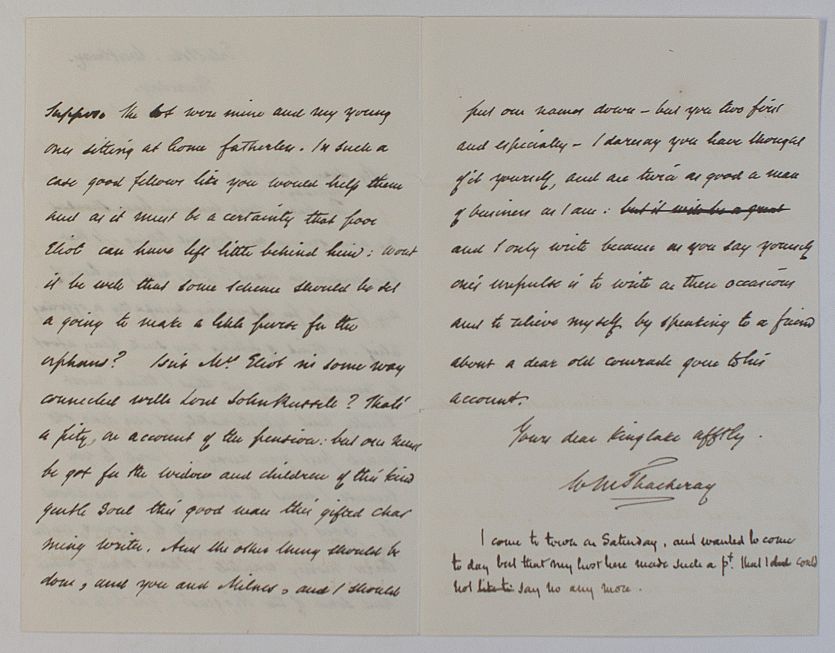 Suppose the lot were mine and my young
ones sitting at home fatherless. In such a
case good fellows like you would help them
and as it must be a certainty that poor
Eliot can have left little behind him: wont
it be well that some scheme should be set
a going to make a little purse for the
orphans? Isn't Mrs Eliot in some way
connected with Lord John Russell? That's
a pity, on account of the pension: but one must
be got for the widow and children of this kind
gentle soul this good man this gifted char
ming writer. And the other thing should be
done, and you and Milnes, and I should
put our names down - but you two first
and especially - I daresay you have thought
of it yourself, and are twice as good a man
of business as I am: but it will be a great
and I only write because as you say yourself
one's impulse is to write on these occasions
and to relieve myself by speaking to a friend
about a dear old comrade gone to his
account.
Yours dear Kinglake afftly.
W M Thackeray
I come to town on Saturday, and wanted to come
to day but that my host here made such a pt. that I could
not say no any more.